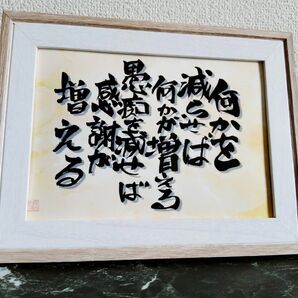 何かを
減らせば
何かが増える
愚痴を減せば
感謝が
増える